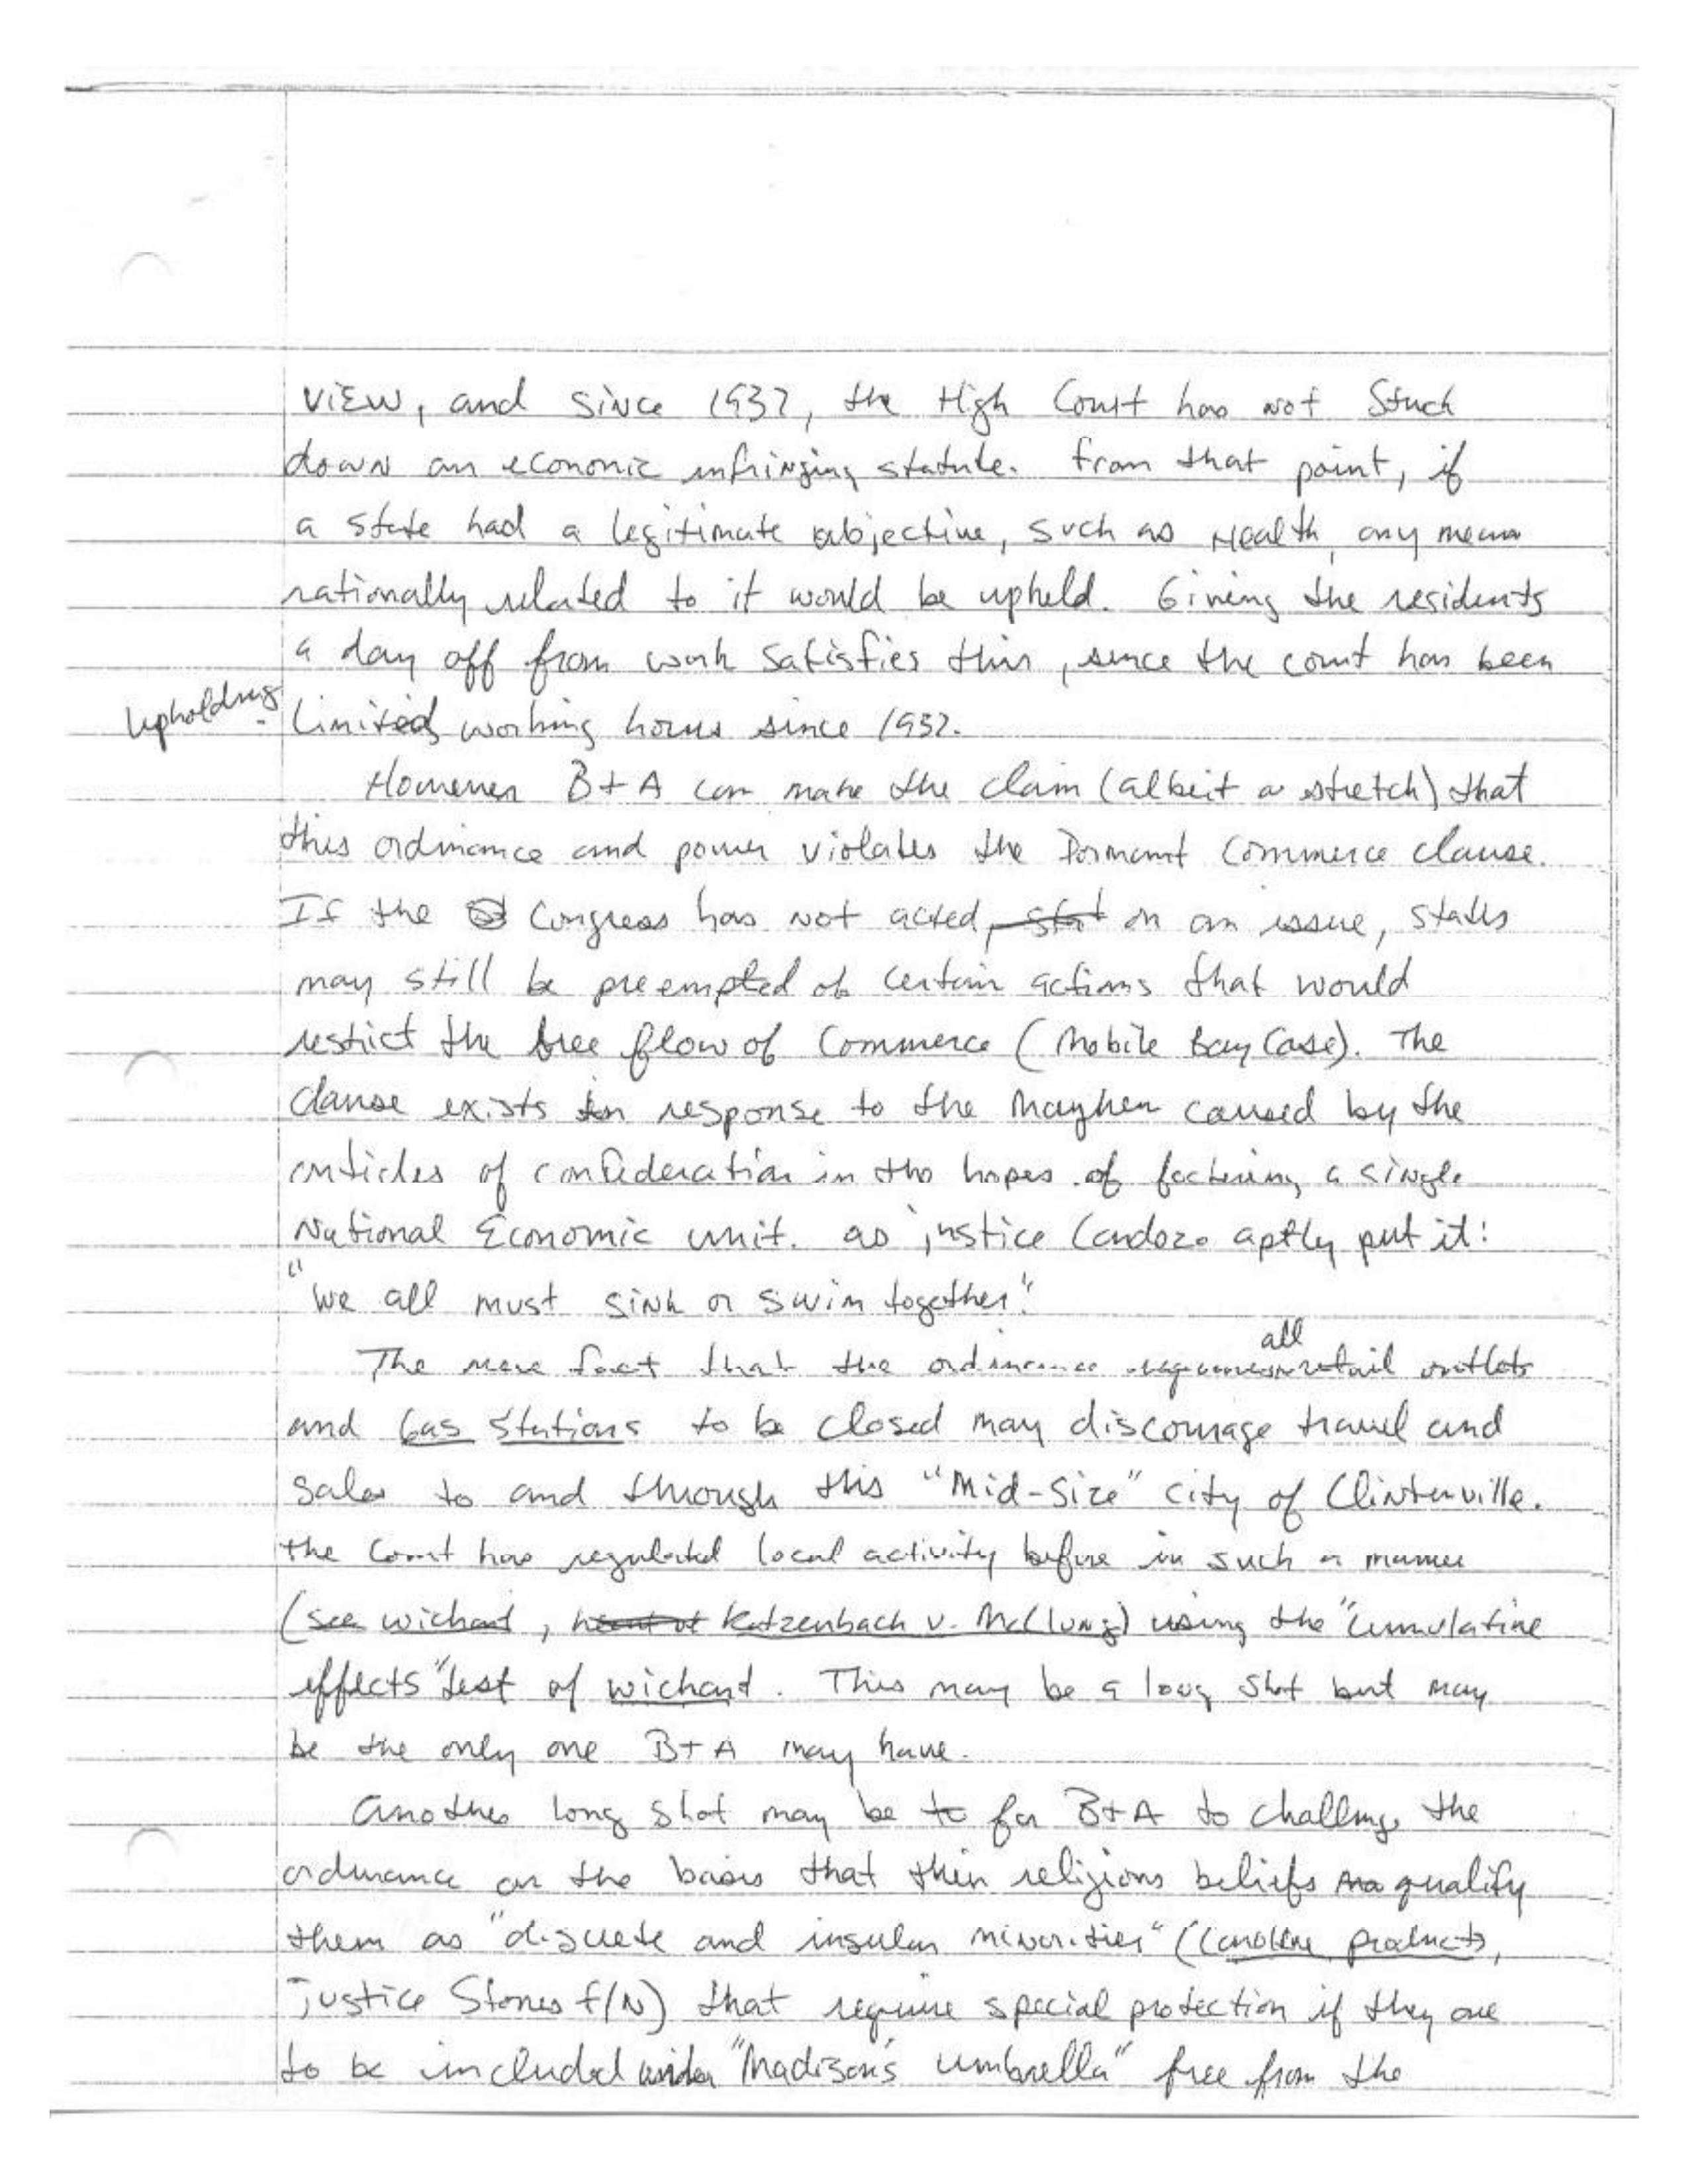 view, and since 1937, the High Court has not Stuck
down an economic infringing statute. from that point, if
a state had a legitimate objective, such as Health, any means
rationally related to it would be upheld. Giving the residents
a day off from work satisfies this, since the court has been
Upholding limited working hours since 1937.
However B+A can make the claim (albeit a stretch) that
this ordinance and power violates the Dormant Commerce clause.
If the Congress has not acted, stat on an issue, states
may still be preempted of certain actions that would
restrict the free flow of Commerce (Mobile Bay Case). The
clause exists in response to the Mayhem caused by the
articles of confederation in the hopes of fostering a single
National Economic unit. as justice Cardozo aptly put it:
"we all must sink or swim together."
all
The mere fact that the ordinance requires retail outlets
and Gas Stations to be closed may discourage travel and
sales to and through this "Mid-Size" city of Clintonville.
the Court has regulated local activity before in such a manner
(see wichard, Katzenbach v. McClung) using the "cumulative
effects" test of wichard. This may be a long shot but may
be the only one B+A may have.
another long shot may be to for B+A to challenge the
ordinance on the basis that their religious beliefs qualify
them as "discrete and insular minorities" (Carolene products,
Justice Stones f/N) that require special protection if they are
to be included under "Madison's umbrella" free from the